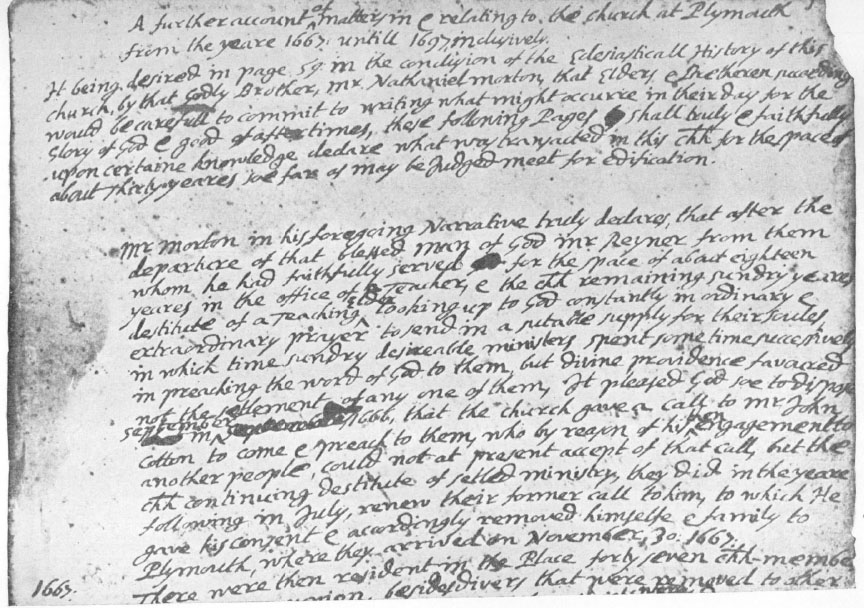 A further account of matters in & relating to the church at Plymouth
from the yeare 1667: untill 1697, inclusively.
It being desired in page 59. in the conclusion of the Eclesiasticall History of this
church, by that Godly Brother, mr. Nathaniel morton, that Elders & Bretheren succeeding
would be carefull to commit to writing what might occurre in their day for the
Glory of God & good of aftertimes, these following Pages shall truly & faithfully
upon certaine knowledge declare what was transacted in this chh for the space of
about Thirty yeares soe far as may be Judged meet for edification.
Mr Morton in his foregoing Narrative truly declares, that after the
departure of that blessed man of God mr Reyner from them
whom he had faithfully served for the space of about eighteen
yeares in the office of a Teacher, & the chh remaining sundry yeares
destitute of a Teaching Elder looking up to God constantly in ordinary &
extraordinary prayer to send in a sutable supply for their soules
in which time sundry desireable ministers spent some time successively
in preaching the word of God to them, but divine providence favored
not the setlement of any one of them, It pleased God soe to dispose
september in 1666, that the church gave a call to mr John
Cotton to come & preach to them, who by reason of his then engagement to
another people, could not at present accept of that call, but the
chh continuing destitute of setled ministry, they did in the yeare
following in July, renew their former call to him, to which He
gave his consent & accordingly removed himselfe & family to
Plymouth, where they arrived on November, 30: 1667.
1667. There were then resident in the Place forty seven chh-membe
besides divers that were removed to other